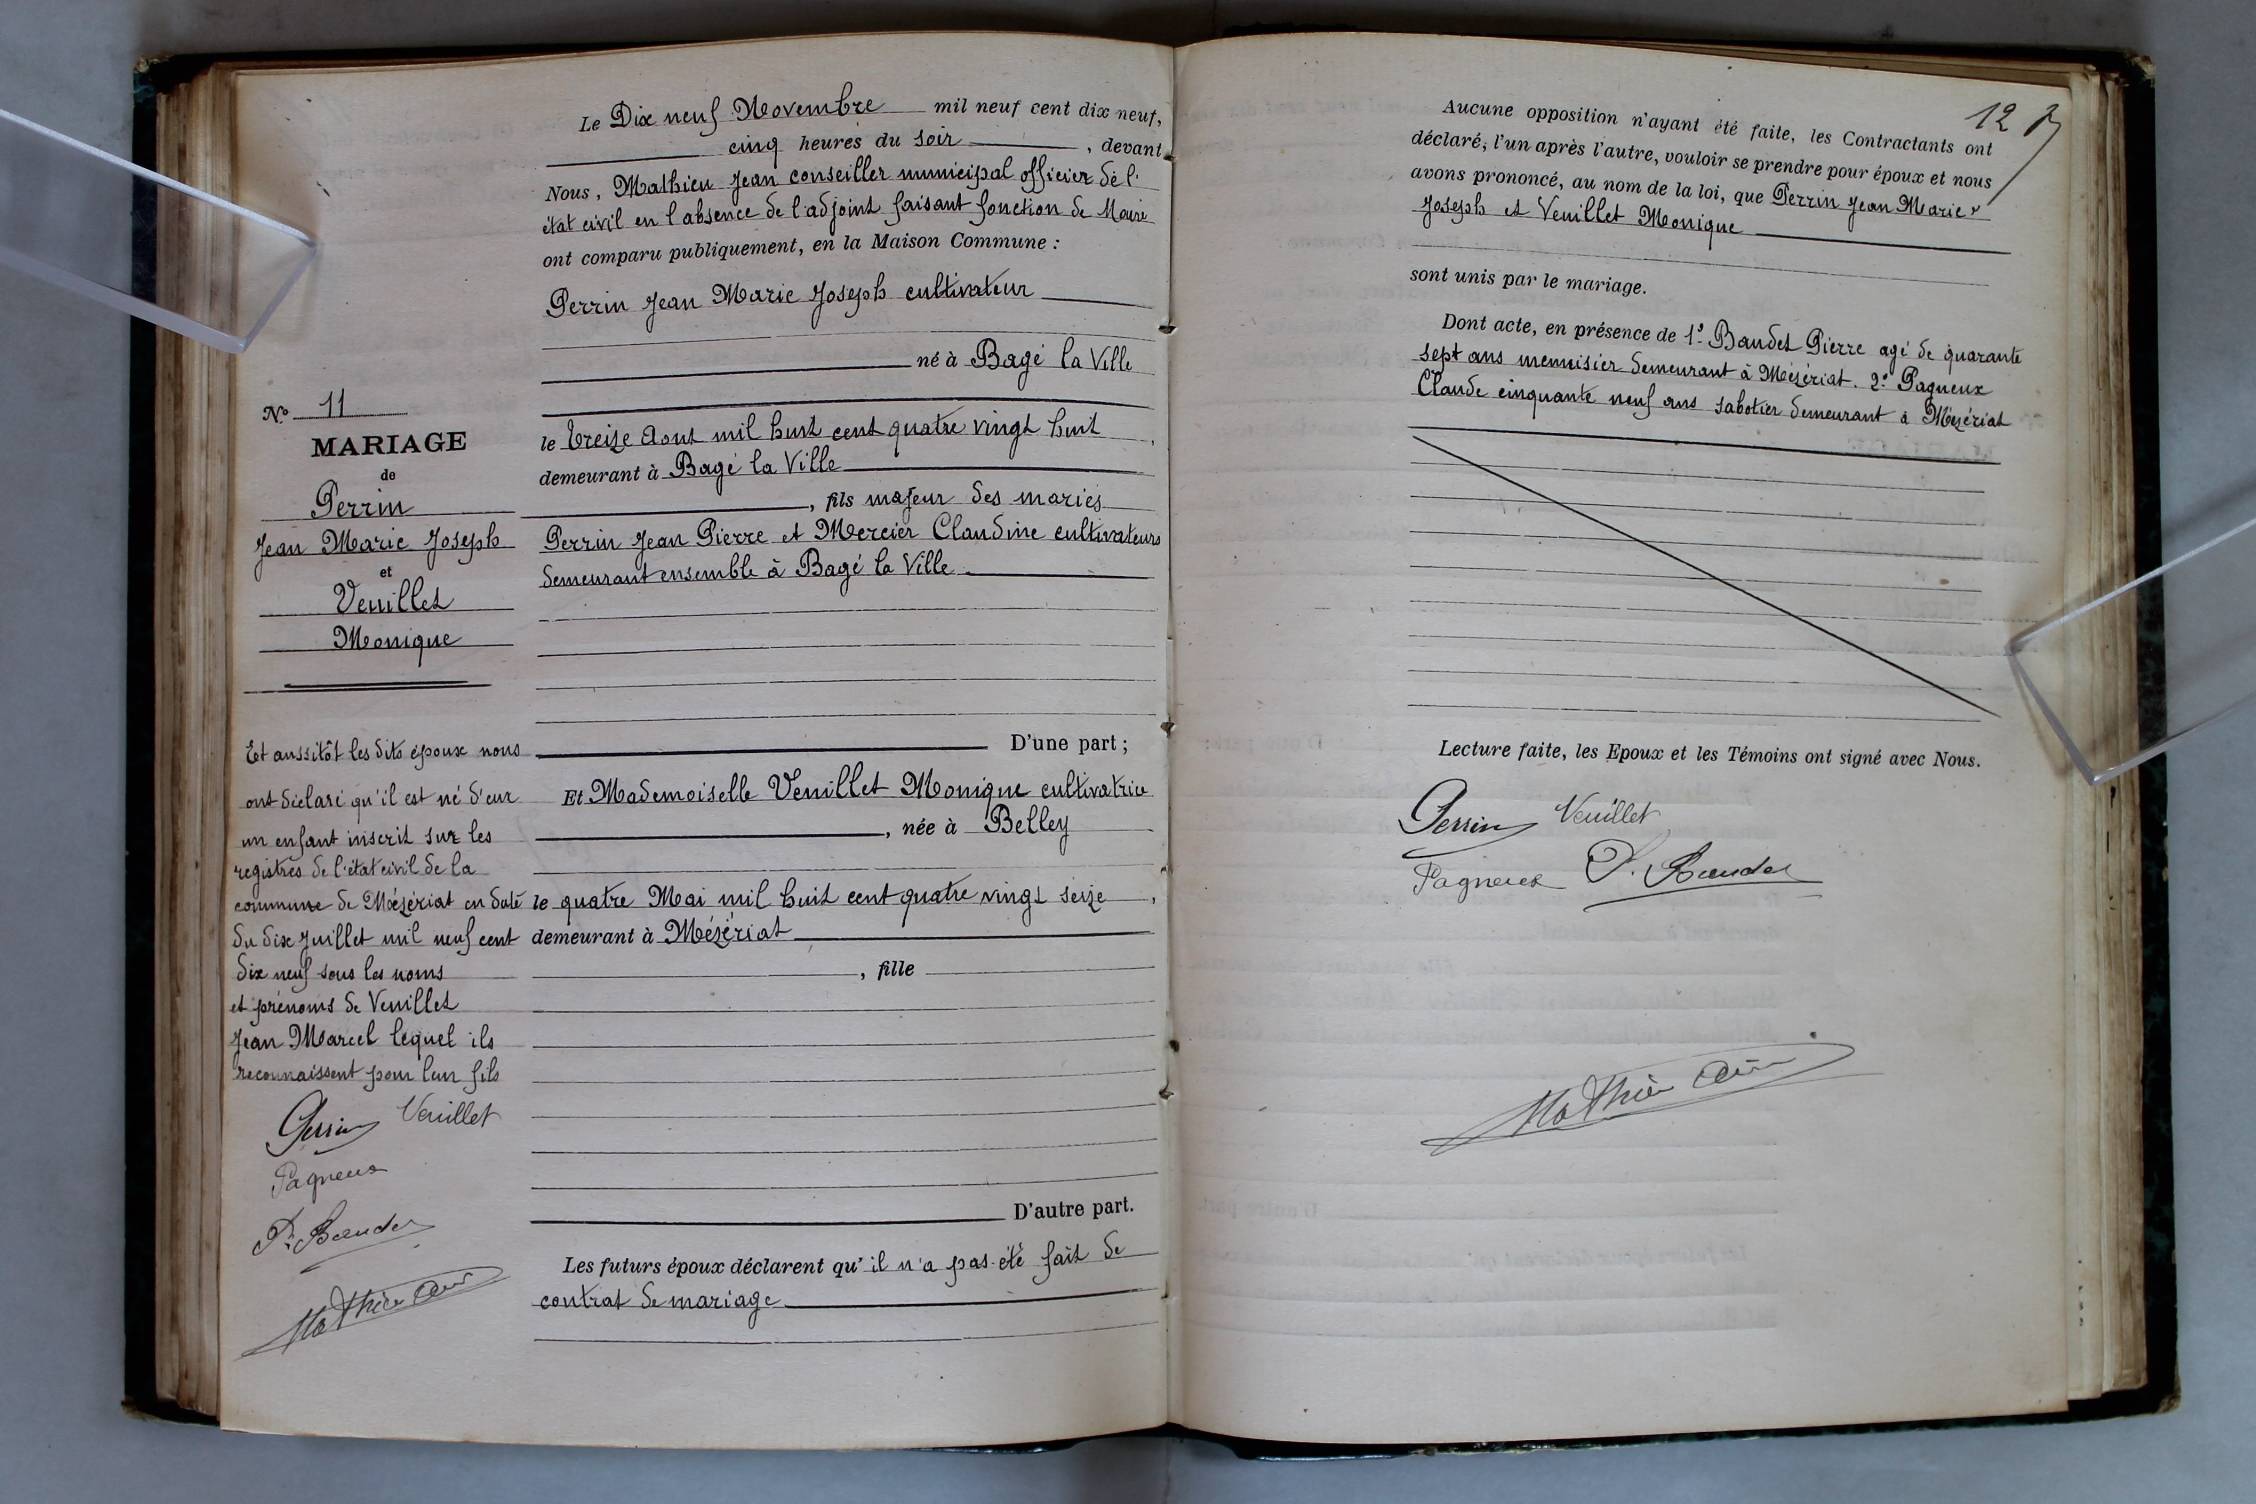 N.º 11
MARIAGE
de
Perrin
Jean Marie Joseph
et
Veuillet
Monique
Et aussitôt les dits époux nous
ont déclaré qu'il est né d'eux
un enfant inscrit sur les
registres de l'état civil de la
commune de Mézériat en date
du dix Juillet mil neuf cent
dix neuf sous les noms
et prénoms de Veuillet
Jean Marcel lequel ils
reconnaissent pour leur fils
Perrin Veuillet
Pagneux
P. Baudet
Mathieu
Le Dix neuf Novembre mil neuf cent dix neuf,
cinq heures du soir, devant
Nous, Mathieu Jean conseiller municipal officier de l'
état civil en l'absence de l'adjoint faisant fonction de Maire
ont comparu publiquement, en la Maison Commune :
Perrin Jean Marie Joseph cultivateur
né à Bagé la Ville
le treize Aout mil huit cent quatre vingt huit,
demeurant à Bagé la Ville
, fils majeur des mariés
Perrin Jean Pierre et Mercier Claudine cultivateurs
demeurant ensemble à Bagé la Ville
D'une part ;
Et Mademoiselle Veuillet Monique cultivatrice
, née à Belley
le quatre Mai mil huit cent quatre vingt seize,
demeurant à Mézériat
, fille
D'autre part.
Les futurs époux déclarent qu'il n'a pas été fait de
contrat de mariage
12
Aucune opposition n'ayant été faite, les Contractants ont
déclaré, l'un après l'autre, vouloir se prendre pour époux et nous
avons prononcé, au nom de la loi, que Perrin Jean Marie
Joseph et Veuillet Monique
sont unis par le mariage.
Dont acte, en présence de 1º Baudet Pierre agé de quarante
sept ans menuisier demeurant à Mézériat. 2º Pagneux
Claude cinquante neuf ans sabotier demeurant à Mézériat
Lecture faite, les Epoux et les Témoins ont signé avec Nous.
Perrin Veuillet
Pagneux P. Baudet
Mathieu